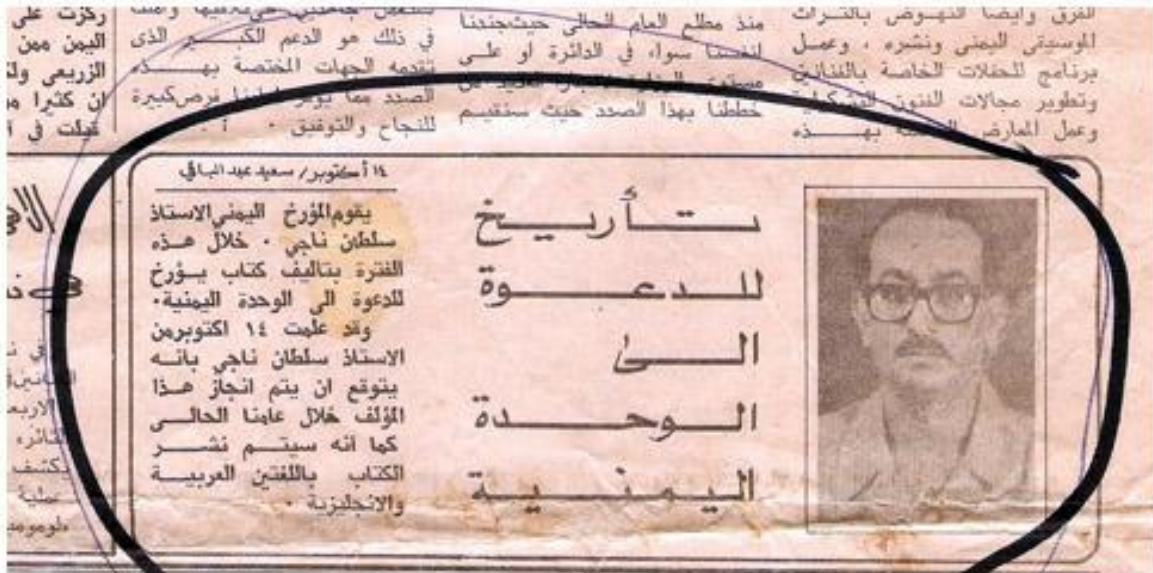 الفرق وايضا النهوض بالتراث
الموسيقى اليمنى ونشره ، وعمل
برنامج للحفلات الخاصة بالفنانين
وتطوير مجالات الفنون التشكيلية
وعمل المعارض بهذه
منذ مطلع العام الحالى حيث جندنا
انفسنا سواء فى الدائرة او على
خططنا بهذا الصدد حيث سنقيم
فى ذلك هو الدعم الكبير الذى
تقدمه الجهات المختصة بهذه
الصدد فرص كبيرة
للنجاح والتوفيق ٠
ركزت على
اليمن ممن
الزريعى
ان كثيرا
تأريخ
للدعوة
الى
الوحدة
اليمنية
١٤ أكتوبر/ سعيد عبد الباقي
يقوم المؤرخ اليمني الاستاذ
سلطان ناجي ٠ خلال هذه
الفترة بتاليف كتاب يؤرخ
للدعوة الى الوحدة اليمنية٠
وقد علمت ١٤ اكتوبر من
الاستاذ سلطان ناجي بانه
يتوقع ان يتم انجاز هذا
المؤلف خلال عامنا الحالى
كما انه سيتم نشر
الكتاب باللغتين العربية
والانجليزية ٠